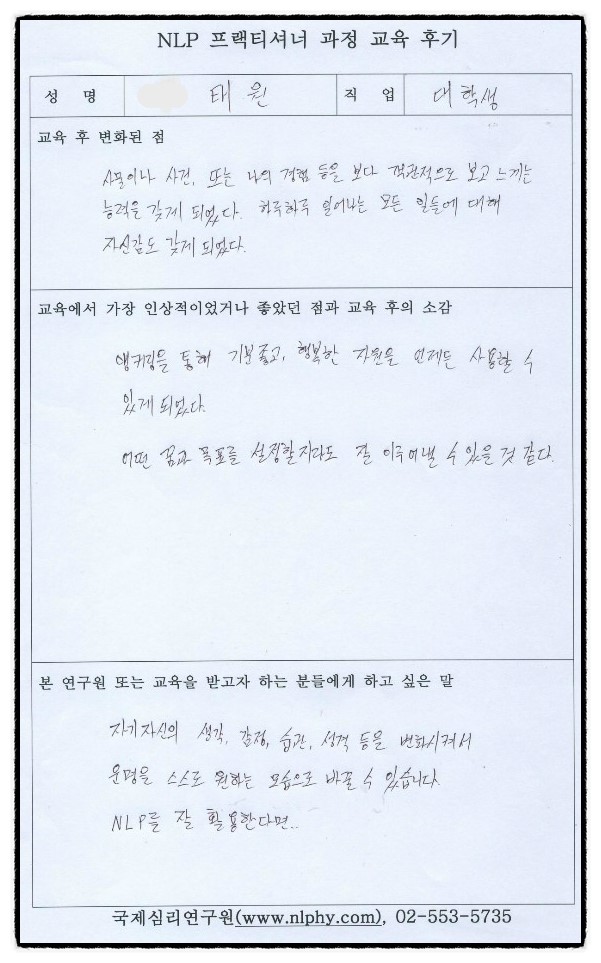 NLP 프랙티셔너 과정 교육 후기
성 명 태원 직 업 대학생
교육 후 변화된 점
사물이나 사건, 또는 나의 경험 등을 보다 객관적으로 보고 느끼는
능력을 갖게 되었다. 하루하루 일어나는 모든 일들에 대해
자신감도 갖게 되었다.
교육에서 가장 인상적이었거나 좋았던 점과 교육 후의 소감
앵커링을 통해 기분좋고, 행복한 자원을 언제든 사용할 수
있게 되었다.
어떤 꿈과 목표를 설정할지라도 잘 이루어낼 수 있을 것 같다.
본 연구원 또는 교육을 받고자 하는 분들에게 하고 싶은 말
자기자신의 생각, 감정, 습관, 성격 등을 변화시켜서
운명을 스스로 원하는 모습으로 바꿀 수 있습니다.
NLP를 잘 활용한다면..
국제심리연구원(www.nlphy.com), 02-553-5735